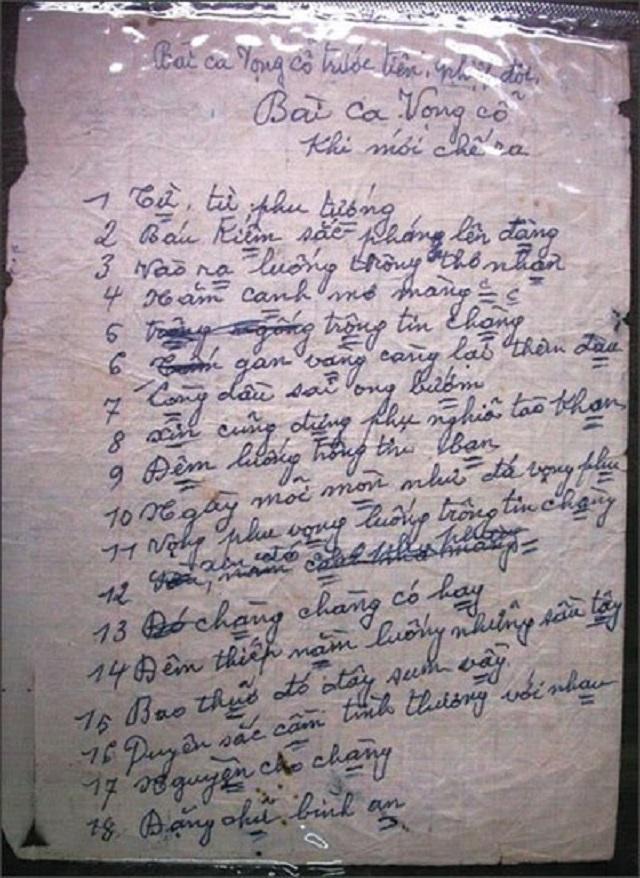 Bài ca Vọng cổ trước tiên, nhịp đôi.
Bài Ca Vọng cổ
Khi mới chế ra
1 Từ, từ phu tướng
2 Báu kiếm sắc pháng lên đàng
3 Vào ra luống trông thơ nhạn
4 Năm canh mơ màng
5 trông tin chàng
6 gan vàng càng lại thêm đau
7 Lòng dầu sai ong bướm
8 xin cũng đừng phụ nghĩa tào khan
9 Đêm luống trông tin bạn
10 Ngày mỏi mòn như đá vọng phu
11 Vọng phu vọng luống trông tin chàng
12
13 chàng chàng có hay
14 Đêm thiếp nằm luống những sầu tây
15 Bao thuở đó đây sum vầy
16 Duyên sắc cầm tình thương với nhau
17 Nguyện cho chàng
18 Đặng chữ bình an